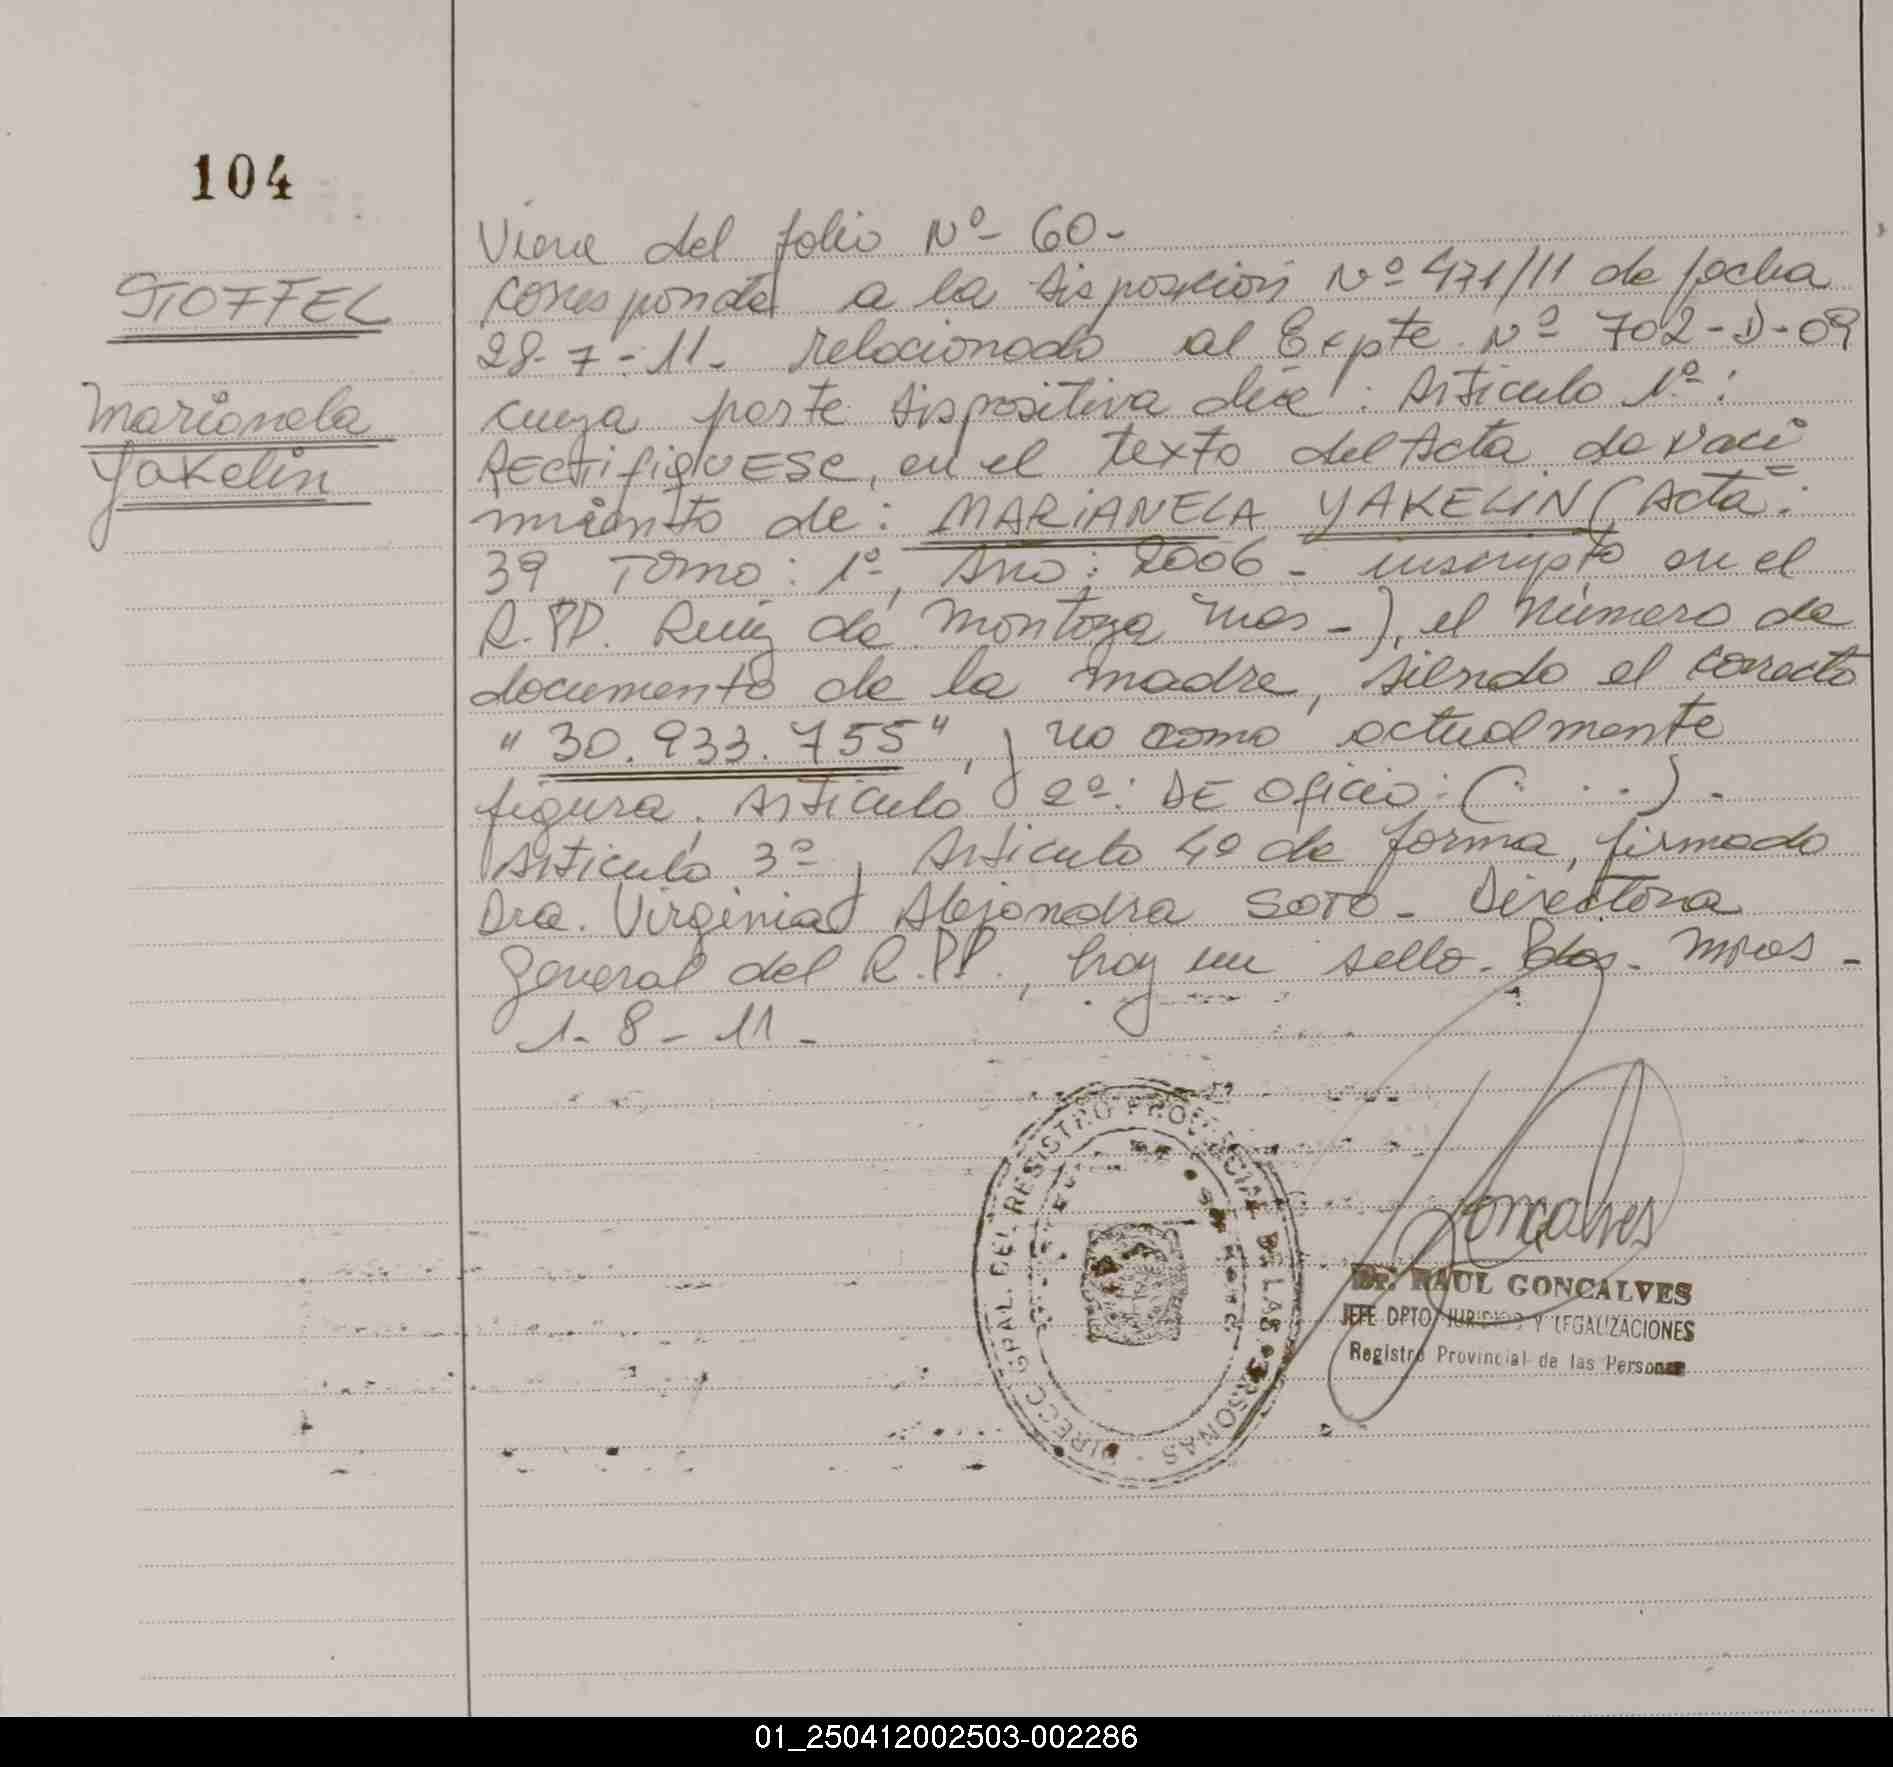 104
STOFFEL
Marianela
Yakelin
Viene del folio Nº 60-
Corresponde a la Disposición Nº 471/11 de fecha
28-7-11- relacionado al Expte. Nº 702-D-09
cuya parte dispositiva dice: Artículo 1º:
RECTIFIQUESE, en el texto del Acta de Naci=
miento de: MARIANELA YAKELIN (Acta:
39 Tomo: 1º, Año: 2006- inscripto en el
R.PP. Ruiz de Montoya Mnes-), el número de
documento de la madre, siendo el correcto
"30.933.755", y no como actualmente
figura. Artículo 2º: DE Oficio: (. . .)-
Artículo 3º y Artículo 4º de forma, firmado
Dra. Virginia Alejandra SOTO- Directora
General del R.PP., hay un sello- Pdas- Mnes-
1-8-11-
DIRECC. GRAL. DEL REGISTRO PROVINCIAL DE LAS PERSONAS
Goncalves
Dr. RAUL GONCALVES
JEFE DPTO. JURIDICO Y LEGALIZACIONES
Registro Provincial de las Personas
01_250412002503-002286